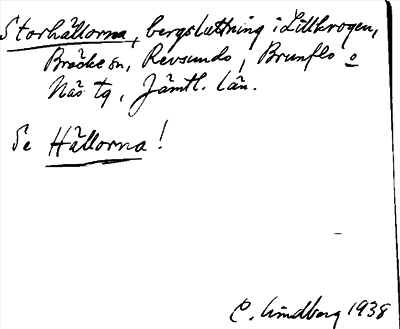 Storhällorna, bergsluttning i Lillkrogen,
Bräcke sn, Revsunds, Brunflo o
Näs tg, Jämtl. län.
Se Hällorna!
C. Lindberg 1938